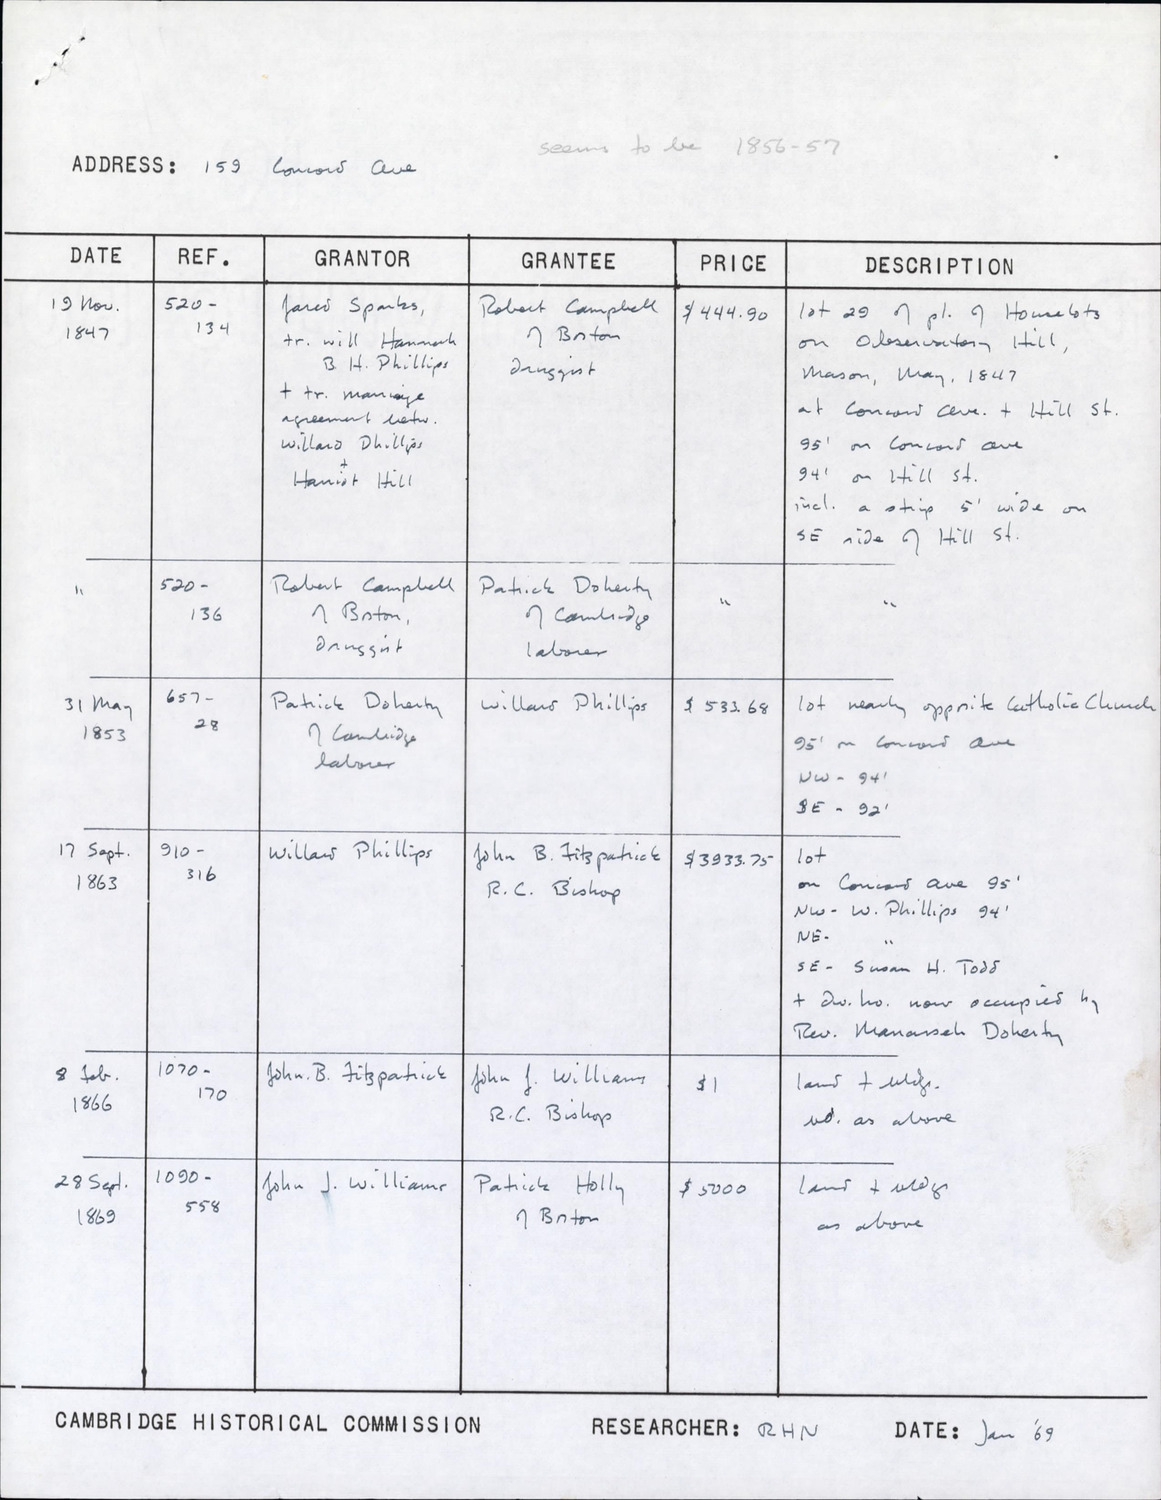 seems to be 1856-57
ADDRESS: 159 Concord Ave
DATE REF. GRANTOR GRANTEE PRICE DESCRIPTION
19 Nov.
1847
520-
134
Jared Sparks,
tr. will Hannah
B. H. Phillips
+ tr. marriage
agreement betw.
Willard Phillips
+
Harriot Hill
Robert Campbell
of Boston
druggist
$444.90
lot 29 of pl. of Houselots
on Observatory Hill,
Mason, May, 1847
at Concord Ave. + Hill St.
95' on Concord Ave
94' on Hill St.
incl. a strip 5' wide on
SE side of Hill St.
"
520-
136
Robert Campbell
of Boston,
druggist
Patrick Doherty
of Cambridge
laborer
"
"
31 May
1853
657-
28
Patrick Doherty
of Cambridge
laborer
Willard Phillips
$533.68
lot nearly opposite Catholic Church
95' on Concord Ave
NW - 94'
SE - 92'
17 Sept.
1863
910-
316
Willard Phillips
John B. Fitzpatrick
R.C. Bishop
$3933.75
lot
on Concord Ave 95'
NW - W. Phillips 94'
NE- "
SE - Susan H. Todd
+ dw. ho. now occupied by
Rev. Manasseh Doherty
8 Feb.
1866
1070-
170
John. B. Fitzpatrick
John J. Williams
R.C. Bishop
$1
land + bldgs.
bd. as above
28 Sept.
1869
1090-
558
John J. Williams
Patrick Holly
of Boston
$5000
land + bldgs
as above
CAMBRIDGE HISTORICAL COMMISSION RESEARCHER: RHN DATE: Jan '69